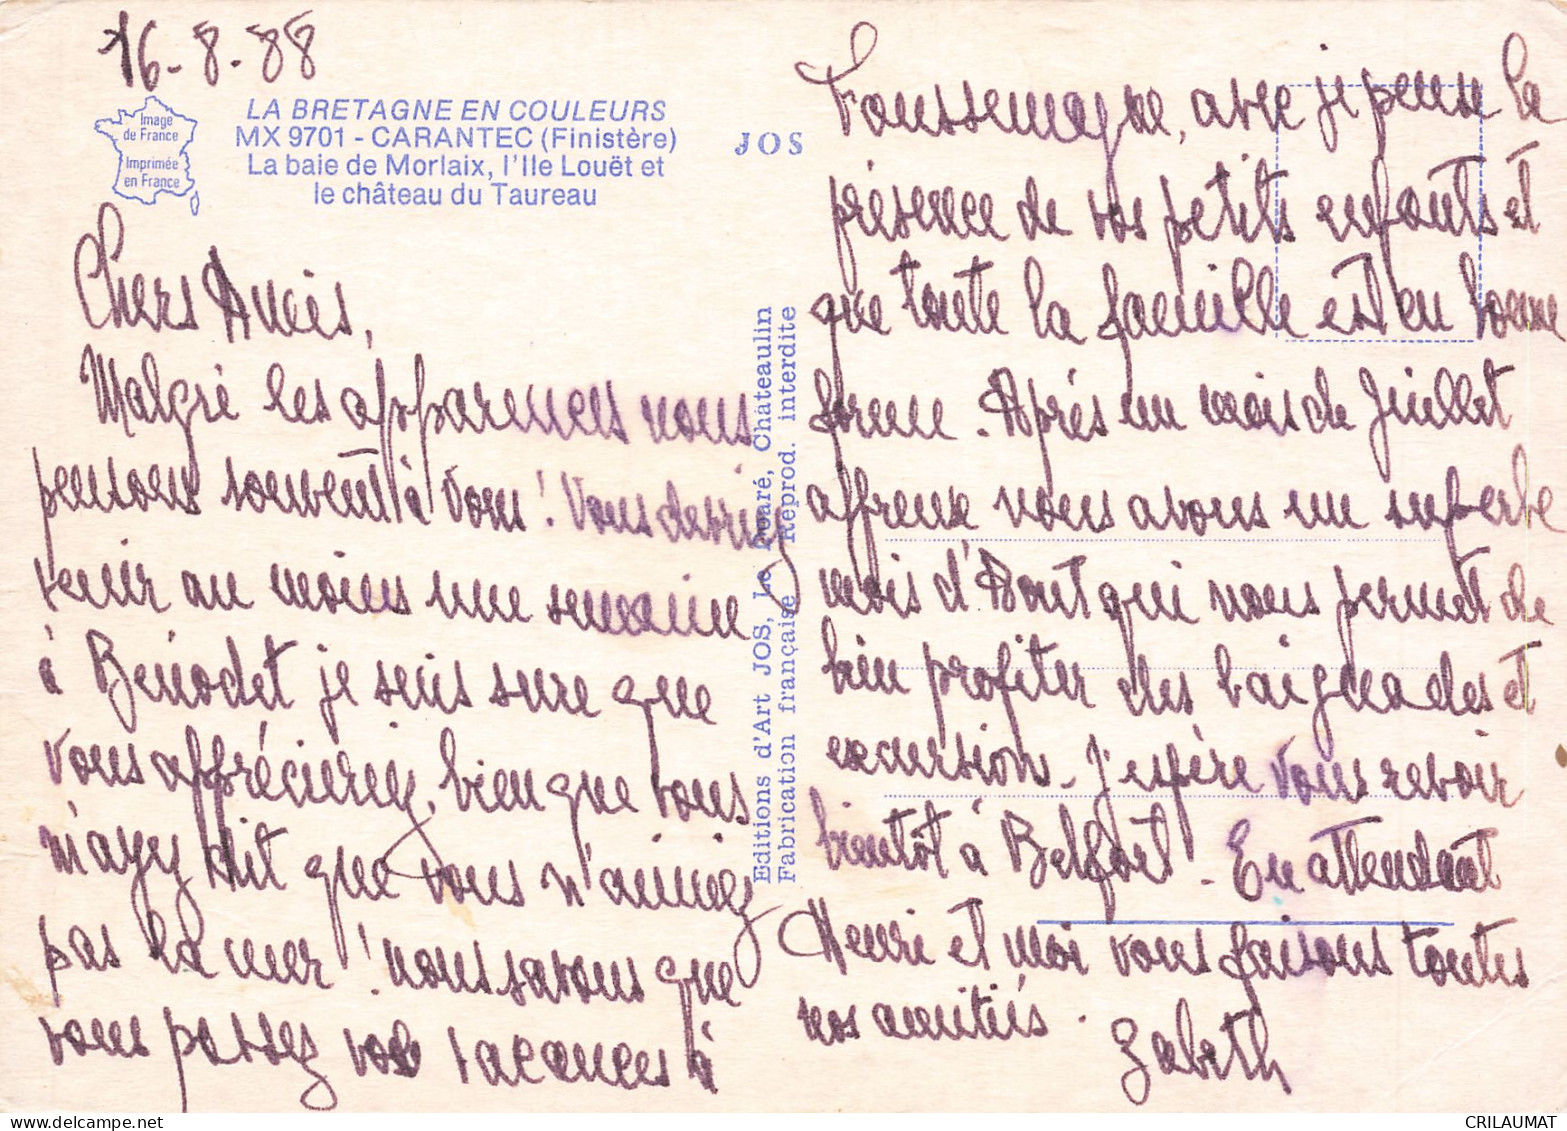 16-8-88
Image
de France
Imprimée
en France
LA BRETAGNE EN COULEURS
MX 9701 - CARANTEC (Finistère)
La baie de Morlaix, l'Ile Louët et
le château du Taureau
JOS
Editions d'Art JOS, Le Doaré, Châteaulin
Fabrication française Reprod. interdite
Chers Amis,
Malgré les apparences nous
pensons souvent à vous ! Vous devriez
venir au moins une semaine
à Bénodet je suis sure que
vous apprécieriez, bien que vous
m'ayez dit que vous n'aimiez
pas la mer ! nous savons que
vous passez vos vacances à
Foussemagne, avec je pense la
présence de vos petits enfants et
que toute la famille est en bonne
forme. Après un mois de Juillet
affreux nous avons un superbe
mois d'Aout qui nous permet de
bien profiter des baignades et
excursion. J'espère vous revoir
bientôt à Belfort. En attendant
Henri et moi vous faisons toutes
nos amitiés.
Zabeth
CRILAUMAT